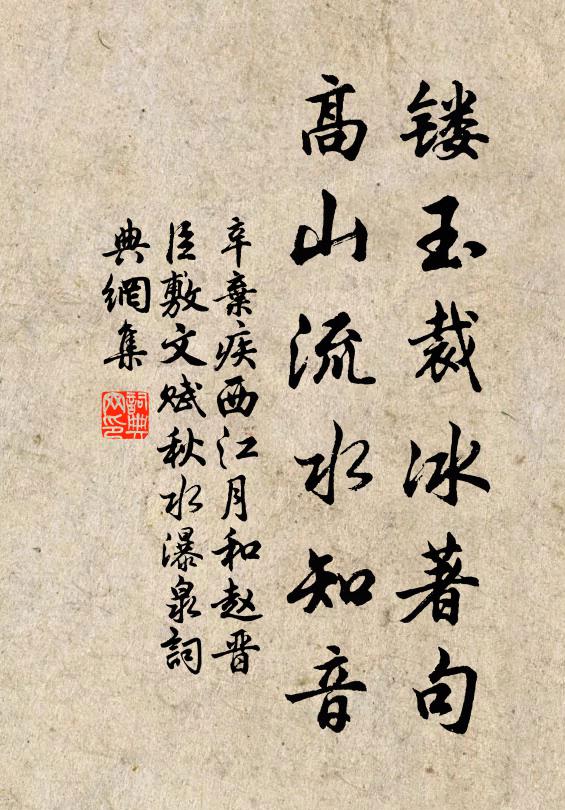 镂玉裁冰著句
高山流水知音
辛棄疾西江月和赵晋
臣敷文赋秋水瀑泉詞
典網集
詞典网印